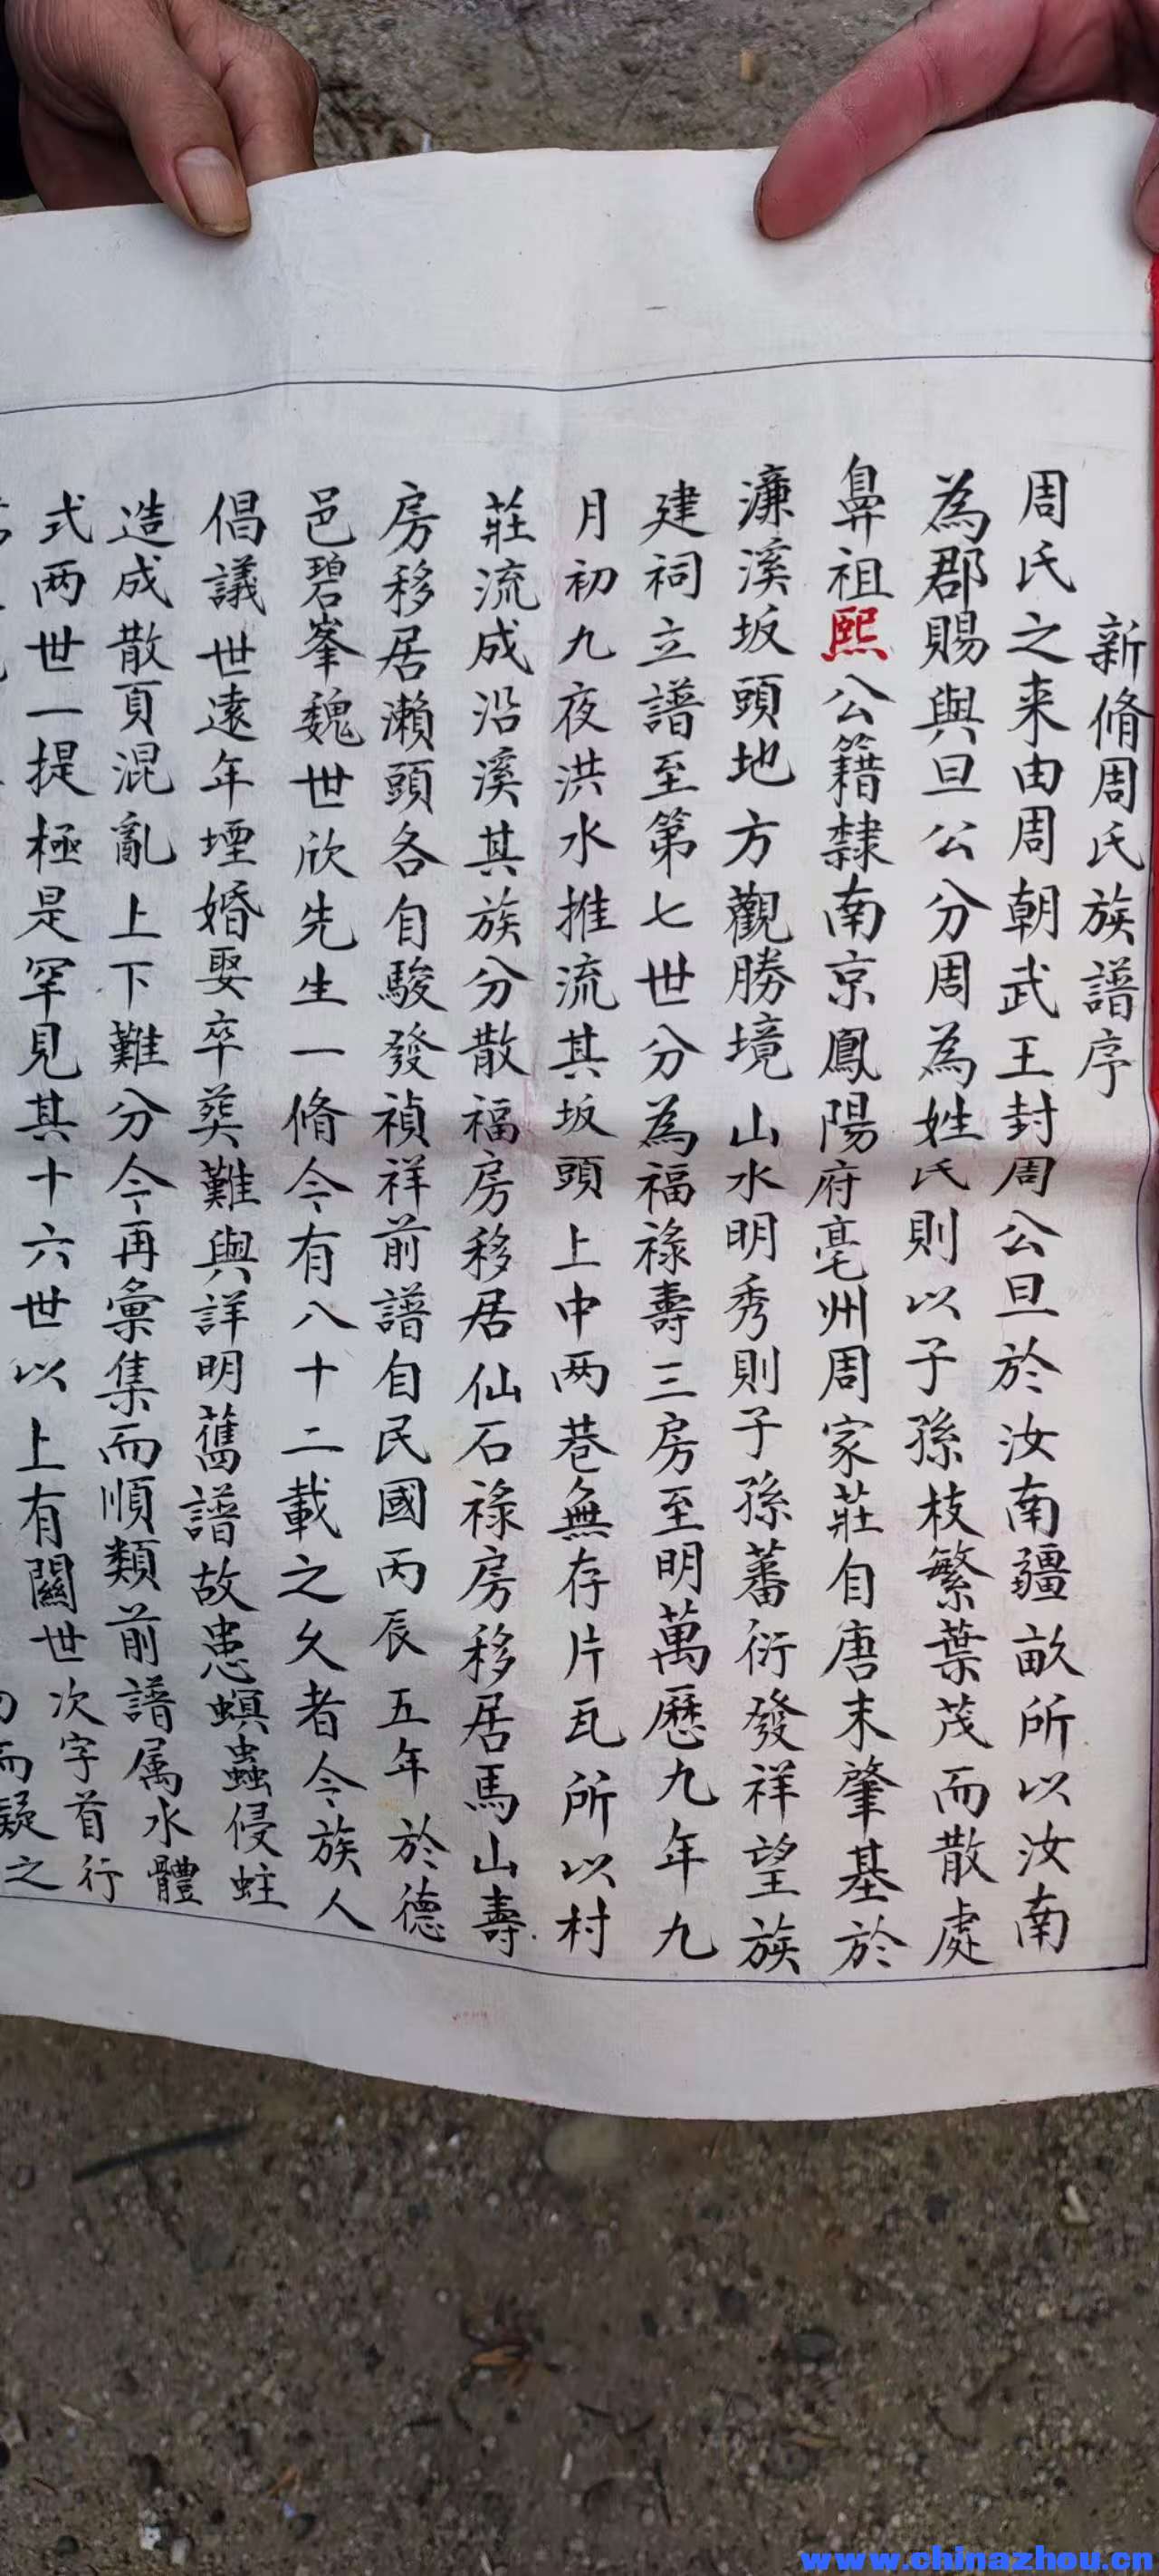 新脩周氏族譜序
周氏之来由周朝武王封周公旦於汝南疆畝所以汝南
為郡賜與旦公分周為姓氏則以子孫枝繁葉茂而散處
鼻祖熙公籍隸南京鳳陽府亳州周家莊自唐末肇基於
濂溪坂頭地方觀勝境山水明秀則子孫蕃衍發祥望族
建祠立譜至第七世分為福祿壽三房至明萬歷九年九
月初九夜洪水推流其坂頭上中两巷無存片瓦所以村
莊流成沿溪其族分散福房移居仙石祿房移居馬山壽
房移居瀨頭各自駿發禎祥前譜自民國丙辰五年於德
邑碧峯魏世欣先生一脩今有八十二載之久者今族人
倡議世遠年堙婚娶卒葬難與詳明舊譜故患螟蟲侵蛀
造成散頁混亂上下難分今再彙集而順類前譜属水體
式两世一提極是罕見其十六世以上有關世次字首行
而疑之
www.chinazhou.cn